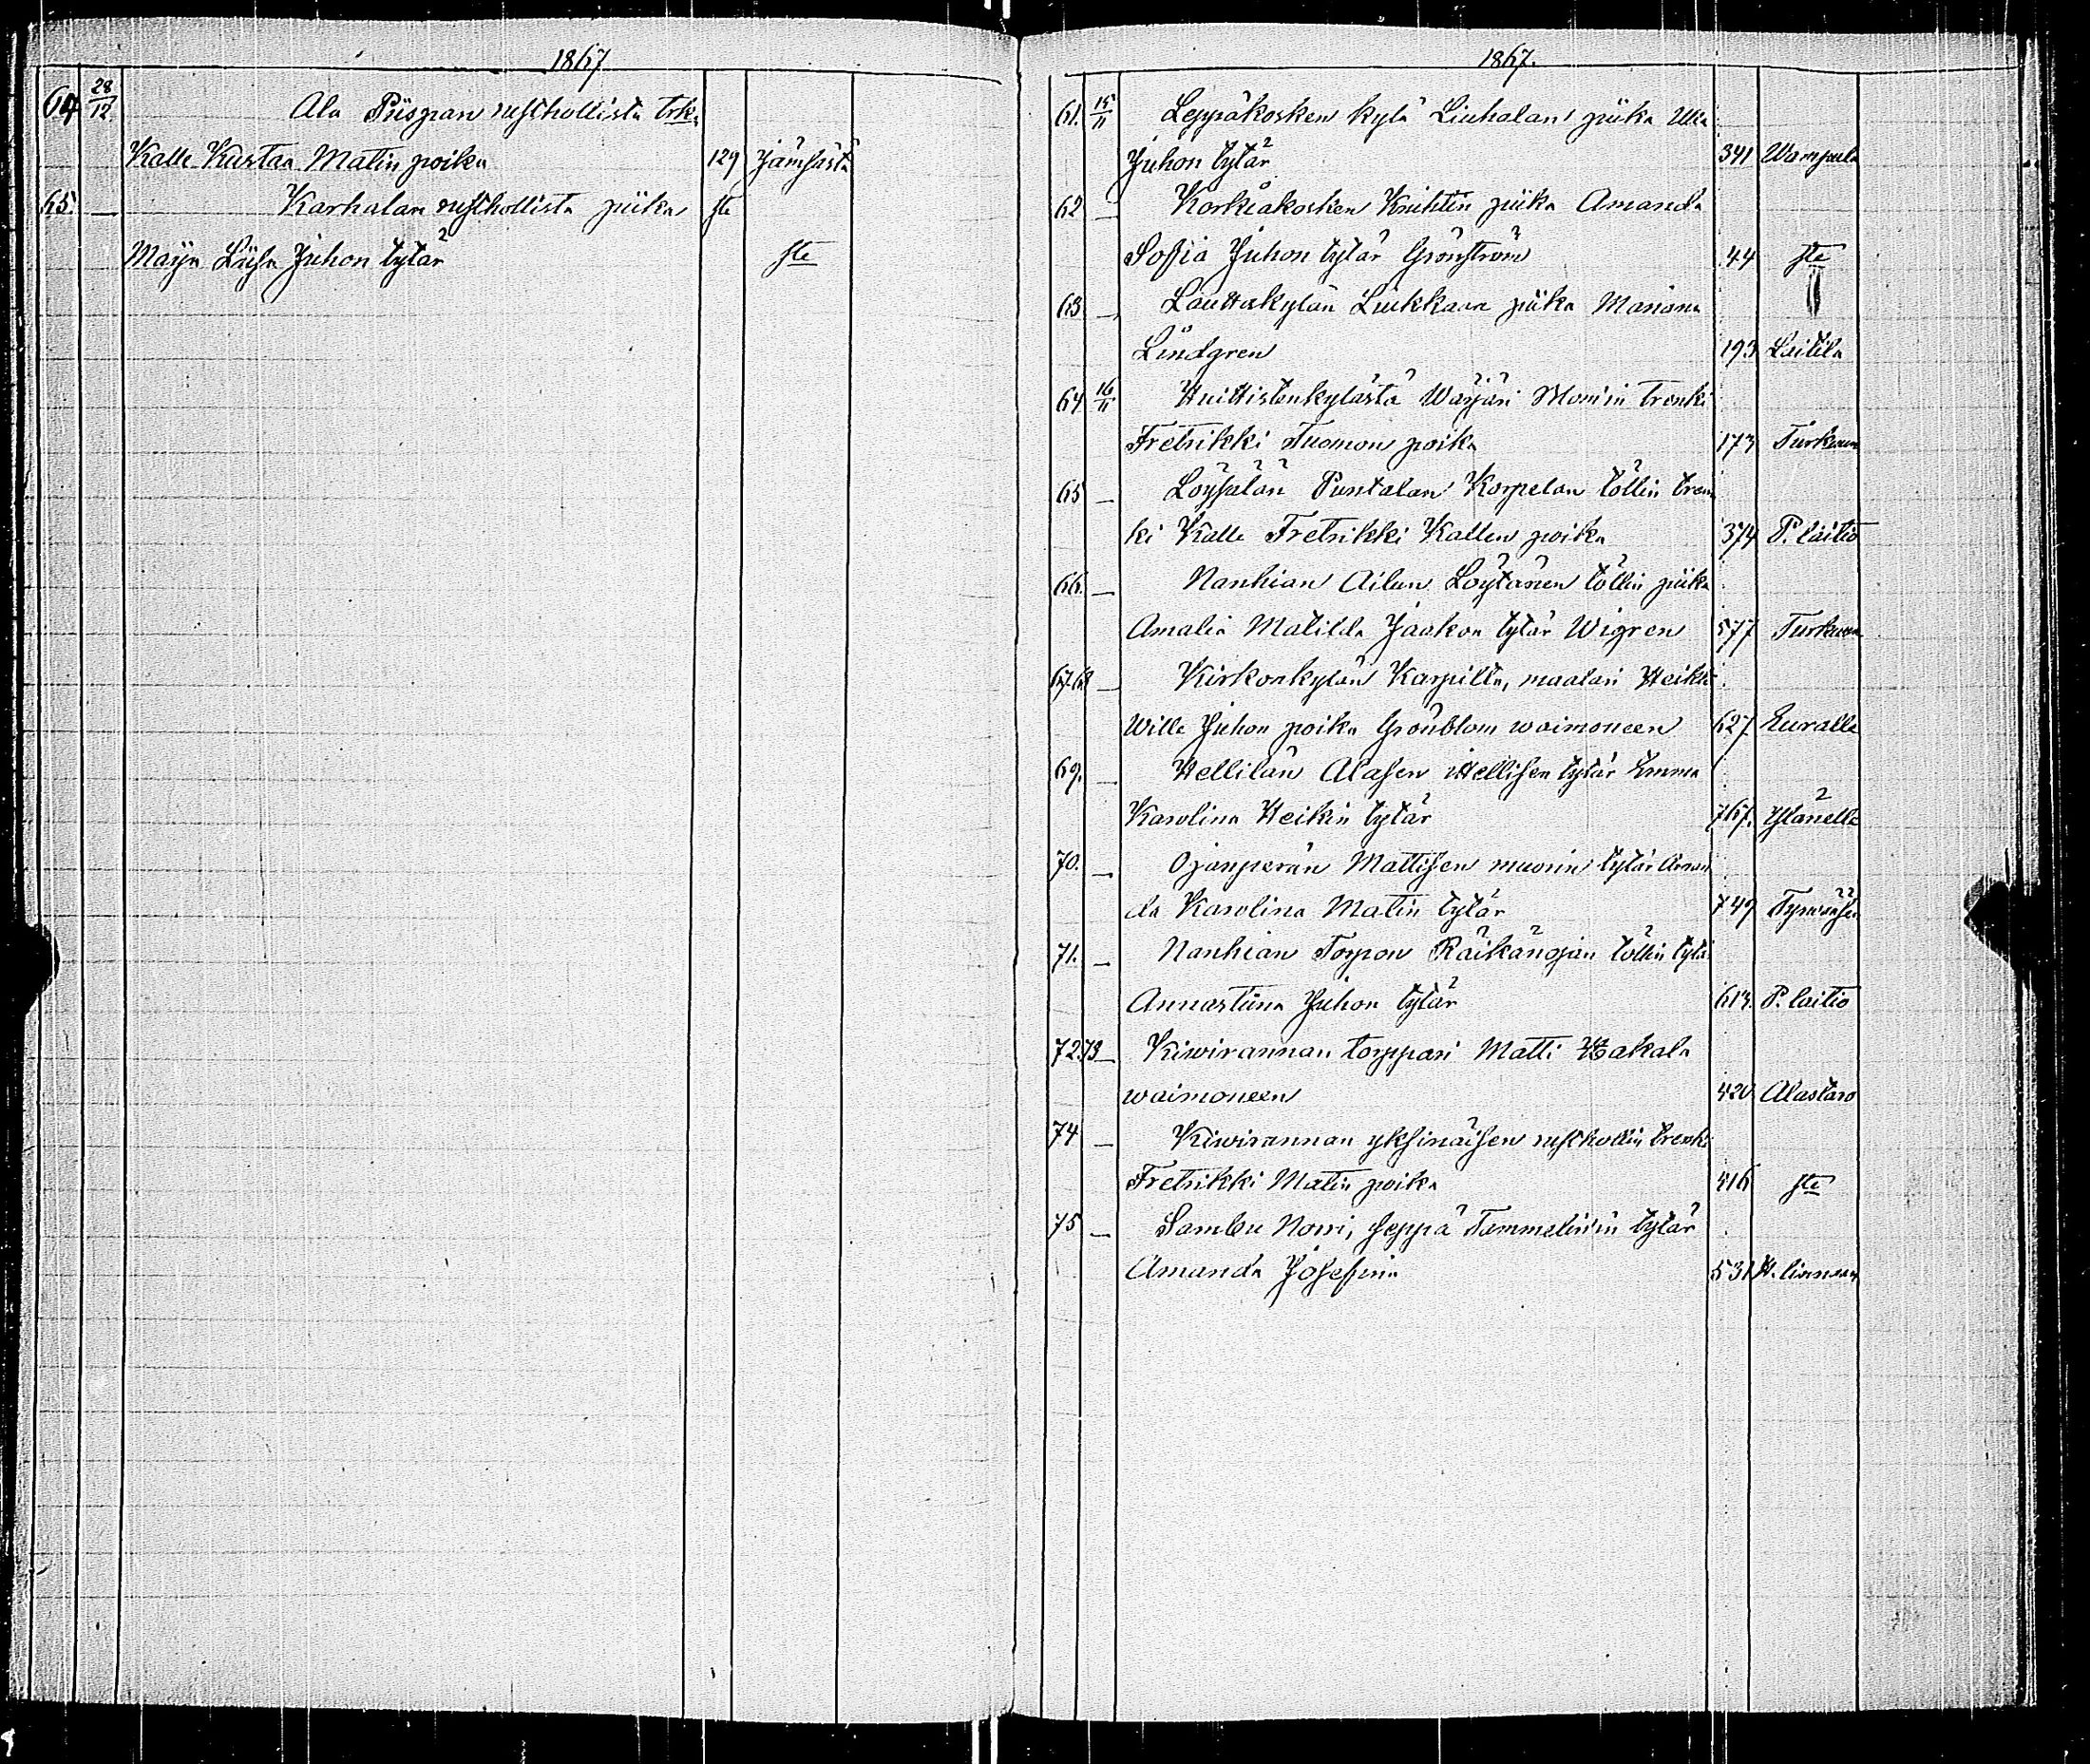 1867
64 28/12 Ala Piispan rusthollista trk.
Kalle Kustaa Matin poika 129 Jämsästä
65. — Karhalan rusthollista piika ste
Maija Liisa Juhon tytär ste
1867.
61. 15/11 Leppäkosken kylä Liuhalan piika Ulla
Juhon tytär 341 Wampula
62 — Korkiakosken Knihtin piika Amanda
Sofia Juhon tytär Grönström 44 ste
63 — Lauttakylän Liukkaan piika Mariana
Lindgren 193 Laitila
64 16/11 Huittistenkylästä Wärjäri Monin trenki
Fretrikki Tuomon poika 173 Turkuun
65 — Löysälän Puntalan Korpelan töllin tren
ki Kalle Fretrikki Kallen poika 374 P. laitio
66. — Nanhian Ailun Löytänen töllin piika
Amalia Matilda Jaakon tytär Wigren 577 Turkuun
67.68 — Kirkonkylän Karpilla, maalari Heikki
Wille Juhon poika Grönblom waimoneen 627 Euralle
69. — Hellilän Alasen Hellisen tytär Emma
Karolina Heikin tytär 767. Ylänelle
70. — Ojanperän Mattisen muorin tytär Aman
da Karolina Matin tytär 749
71. — Nanhian Torpon Räikänojan töllin tytä
Annastiina Juhon tytär 613. P. laitio
72.73 — Kiwirannan torppari Matti Hakala
waimoneen 420 Alastaro
74 — Kiwirannan yksinäisen rusthollin trenki
Fretrikki Matin poika 416 ste
75 — Sambu Norri, seppä Tammelinin tytär
Amanda Josefina 531 H. linnaan